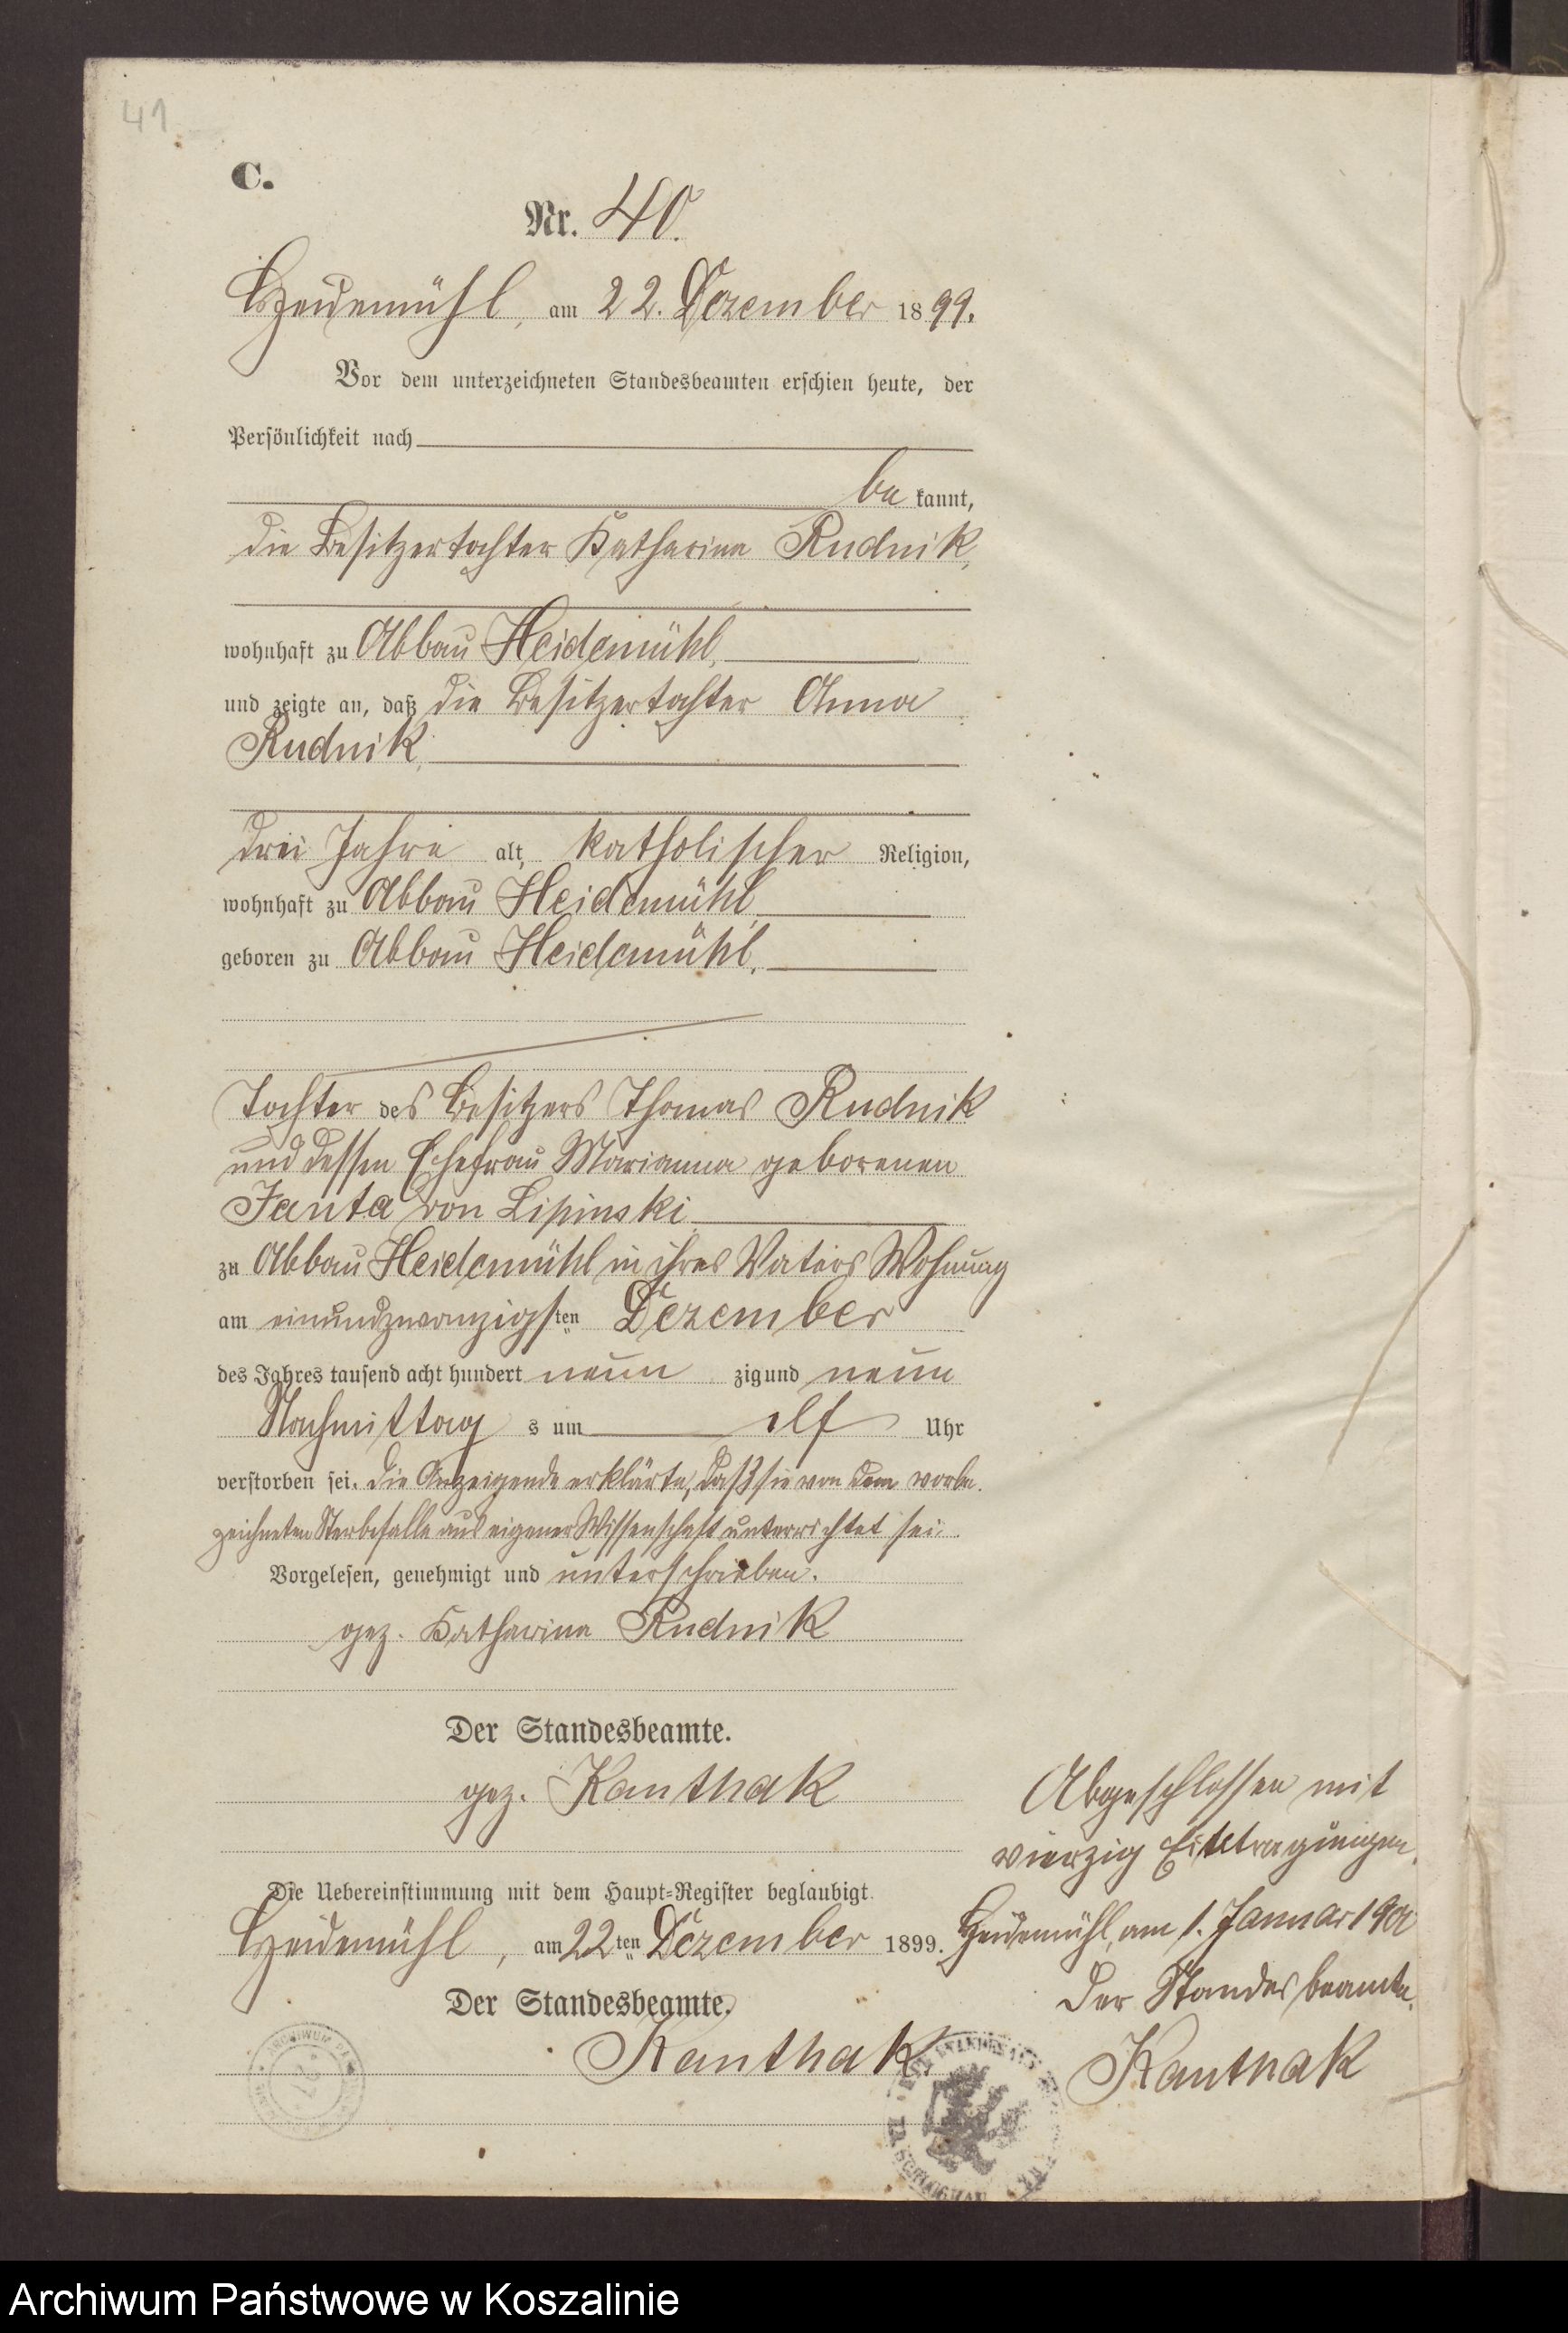 41
C.
Nr. 40.
Heidemühl, am 22. Dezember 1899.
Vor dem unterzeichneten Standesbeamten erschien heute, der
Persönlichkeit nach
be kannt,
die Besitzertochter Katharina Rudnik,
wohnhaft zu Abbau Heidemühl,
und zeigte an, daß die Besitzertochter Anna
Rudnik,
drei Jahre alt, katholischer Religion,
wohnhaft zu Abbau Heidemühl,
geboren zu Abbau Heidemühl,
Tochter des Besitzers Thomas Rudnik
und dessen Ehefrau Marianna geborenen
Janta von Lipinski
zu Abbau Heidemühl in ihres Vaters Wohnung
am einundzwanzigsten Dezember
des Jahres tausend acht hundert neun zig und neun
Nachmittag s um elf Uhr
verstorben sei. Die Anzeigende erklärte, daß sie von dem vorbe-
zeichneten Sterbefalle aus eigener Wissenschaft unterrichtet sei.
Vorgelesen, genehmigt und unterschrieben.
gez. Katharina Rudnik
Der Standesbeamte.
gez. Kanthak
Die Uebereinstimmung mit dem Haupt-Register beglaubigt
Heidemühl, am 22ten Dezember 1899.
Der Standesbeamte.
Kanthak.
Abgeschlossen mit
vierzig Eintragungen.
Heidemühl, am 1. Januar 1900
Der Standesbeamte.
Kanthak
Archiwum Państwowe w Koszalinie